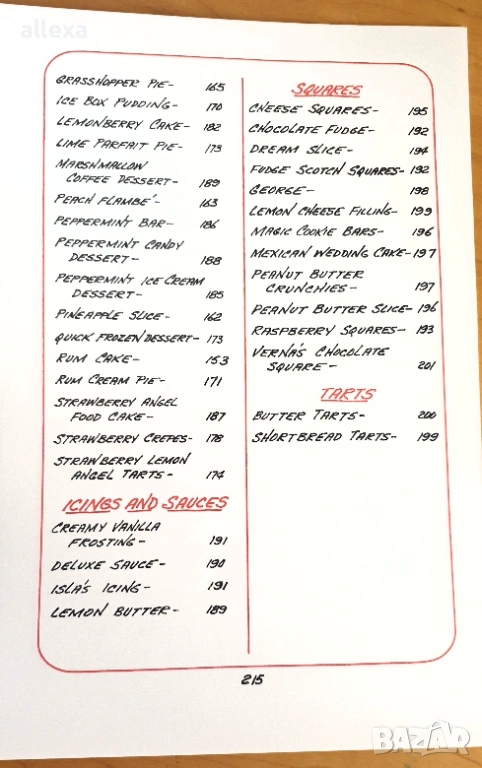 allexa
GRASSHOPPER PIE- 165
ICE BOX PUDDING- 170
LEMONBERRY CAKE- 182
LIME PARFAIT PIE- 173
MARSHMALLOW
COFFEE DESSERT- 189
PEACH FLAMBE´- 163
PEPPERMINT BAR- 186
PEPPERMINT CANDY
DESSERT- 188
PEPPERMINT ICE CREAM
DESSERT- 185
PINEAPPLE SLICE- 162
QUICK FROZEN DESSERT- 173
RUM CAKE- 153
RUM CREAM PIE- 171
STRAWBERRY ANGEL
FOOD CAKE- 187
STRAWBERRY CREPES- 178
STRAWBERRY LEMON
ANGEL TARTS- 174
ICINGS AND SAUCES
CREAMY VANILLA
FROSTING- 191
DELUXE SAUCE- 190
ISLA'S ICING- 191
LEMON BUTTER- 189
SQUARES
CHEESE SQUARES- 195
CHOCOLATE FUDGE- 192
DREAM SLICE- 194
FUDGE SCOTCH SQUARES- 192
GEORGE- 198
LEMON CHEESE FILLING- 199
MAGIC COOKIE BARS- 196
MEXICAN WEDDING CAKE- 197
PEANUT BUTTER
CRUNCHIES- 197
PEANUT BUTTER SLICE- 196
RASPBERRY SQUARES- 193
VERNA'S CHOCOLATE
SQUARE- 201
TARTS
BUTTER TARTS- 200
SHORTBREAD TARTS- 199
215
BAZAR